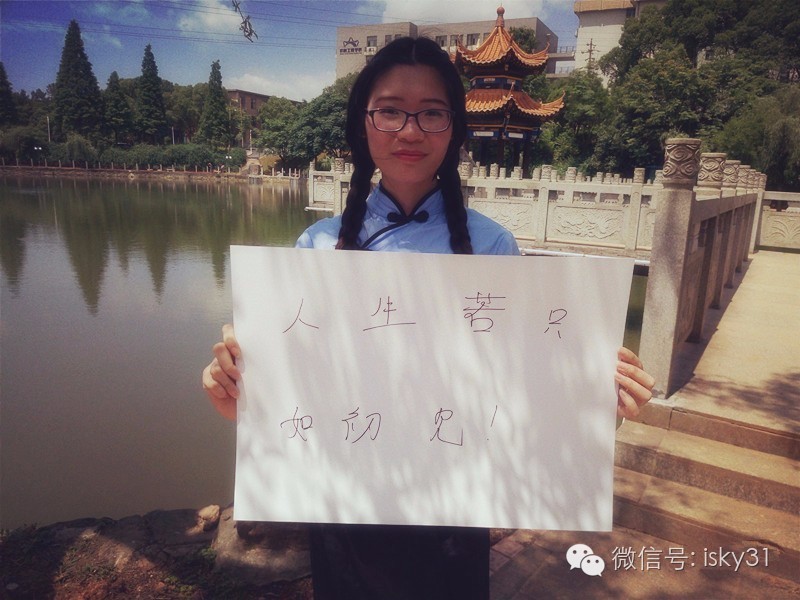 人生若只
如初见！
微信号: isky31